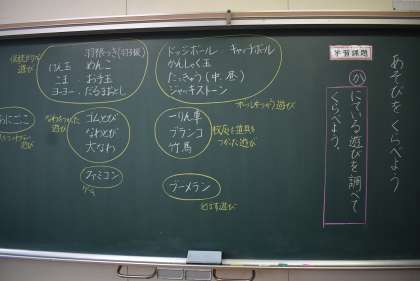 あそびをくらべよう
学習課題
か
にている遊びを調べて
くらべよう。
ドッジボール キャッチボール
かんしゃく玉
たっきゅう(中 昼)
ジャッキストーン
ボールをつかう遊び
羽根つき(羽子板)
けん玉 めんこ
こま お手玉
ヨーヨー
遊び
一りん車
ブランコ
竹馬
校庭の道具を
つかった遊び
ゴムとび
なわとび
大なわ
なわをつかった
遊び
おにごっこ
遊び
ファミコン
ゲーム
ブーメラン
とばす遊び